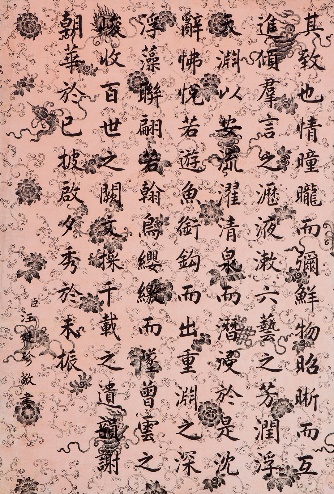 其致也情曈曨而彌鮮物昭晰而互
進傾羣言之瀝液漱六藝之芳潤浮
天淵以安流濯清泉而潛浸於是沈
辭怫悅若遊魚銜鉤而出重淵之深
浮藻聯翩若翰鳥纓繳而墜曾雲之
峻收百世之闕文採千載之遺韻謝
朝華於已披啟夕秀於未振
臣汪敬書